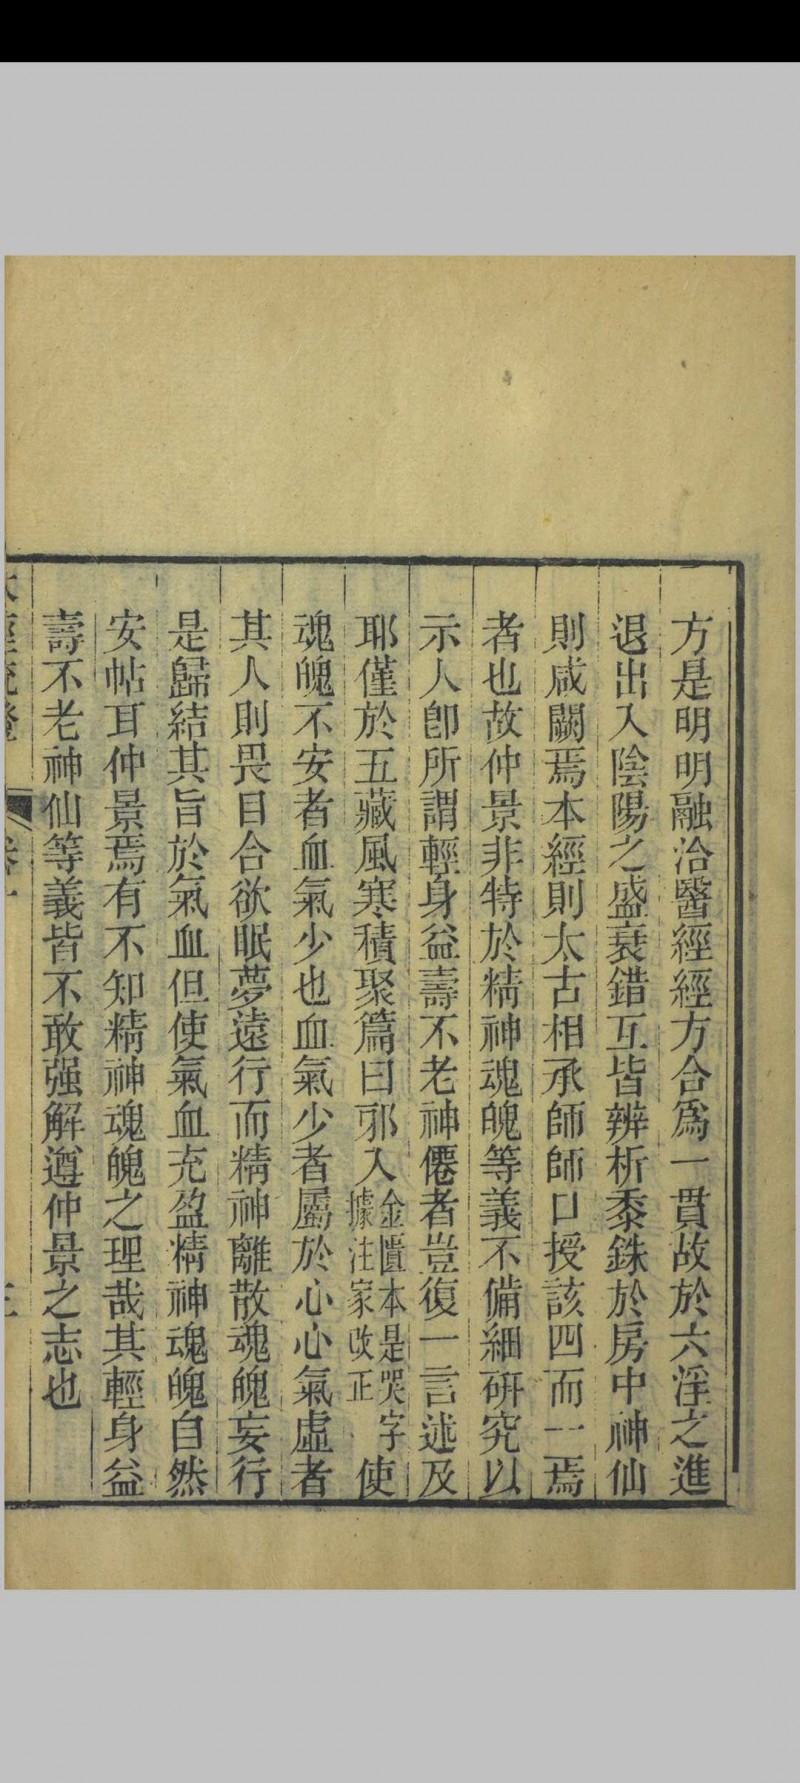 方是明明融洽醫經經方合爲一貫故於六淫之進
退出入陰陽之盛衰錯互皆辨析黍銖於房中神仙
則咸闕焉本經則太古相承師師口授該四而一焉
者也故仲景非特於精神魂魄等義不備細研究以
示人卽所謂輕身益壽不老神僊者豈復一言述及
耶僅於五藏風寒積聚篇曰邪入金匱本是哭字據注家改正使
魂魄不安者血氣少也血氣少者屬於心心氣虛者
其人則畏目合欲眠夢遠行而精神離散魂魄妄行
是歸結其旨於氣血但使氣血充盈精神魂魄自然
安帖耳仲景焉有不知精神魂魄之理哉其輕身益
壽不老神仙等義皆不敢强解遵仲景之志也
本經疏證 卷一 三